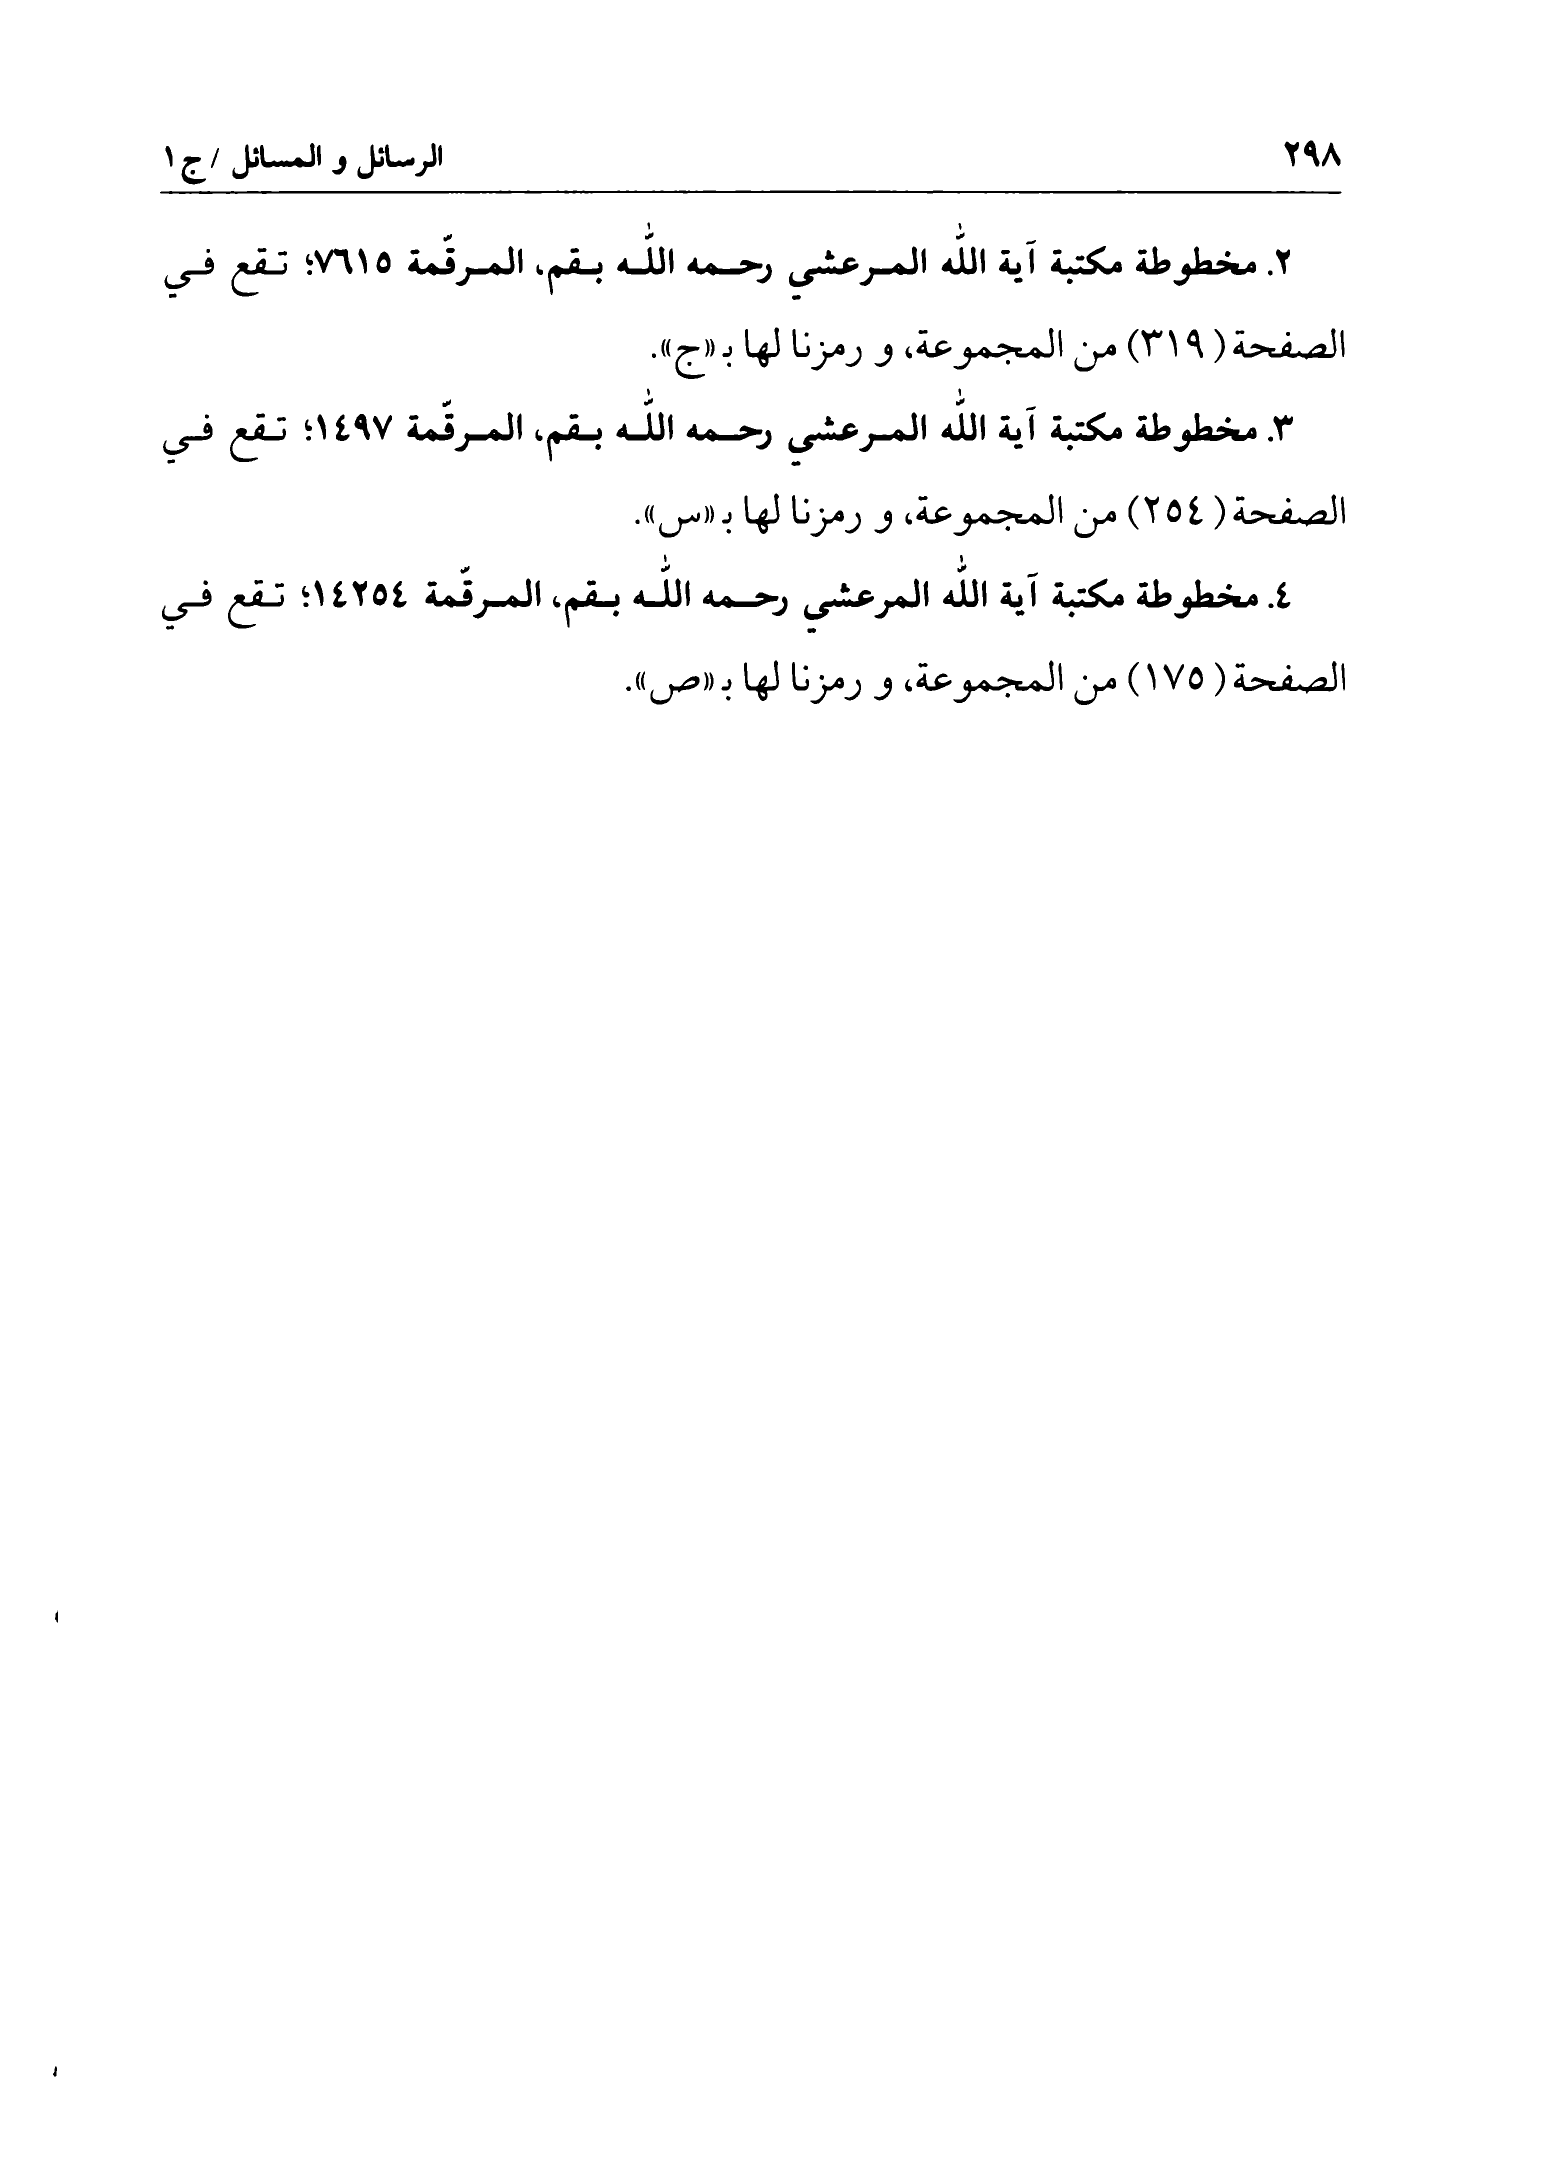 ٢٩٨ الرسائل و المسائل / ج ١
٢. مخطوطة مكتبة آية اللّٰه المرعشي رحمه اللّٰه بقم، المرقّمة ٧٦١٥؛ تقع في
الصفحة (٣١٩) من المجموعة، و رمزنا لها بـ «ج».
٣. مخطوطة مكتبة آية اللّٰه المرعشي رحمه اللّٰه بقم، المرقّمة ١٤٩٧؛ تقع في
الصفحة (٢٥٤) من المجموعة، و رمزنا لها بـ «س».
٤. مخطوطة مكتبة آية اللّٰه المرعشي رحمه اللّٰه بقم، المرقّمة ١٤٢٥٤؛ تقع في
الصفحة (١٧٥) من المجموعة، و رمزنا لها بـ «ص».